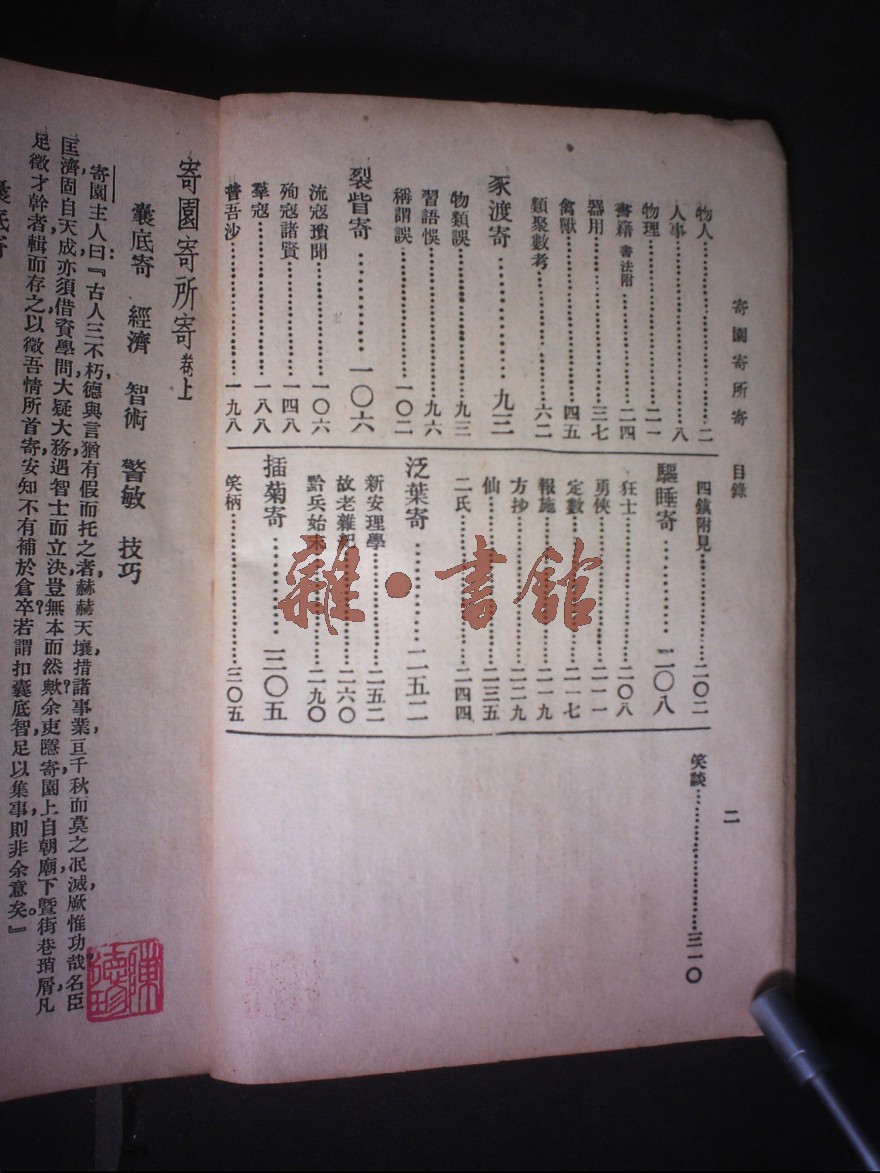 寄園寄所寄 目錄 二
物人……二
人事……八
物理……二一
書籍 書法附……二四
器用……三七
禽獸……四五
類聚數考……六二
豕渡寄……九三
物類誤……九三
習語悞……九六
稱謂誤……一〇二
裂眥寄……一〇六
流寇瑣聞……一〇六
殉寇諸賢……一四八
羣寇……一八八
普吾沙……一九八
四鎮附見……二〇二
驅睡寄……二〇八
狂士……二〇八
勇俠……二一一
定數……二一七
報施……二一九
方抄……二二九
仙……二三五
二氏……二四四
泛葉寄……二五二
新安理學……二五二
故老雜紀……二六〇
黔兵始末……二九〇
插菊寄……三〇五
笑柄……三〇五
笑談……三一〇
雜·書館
寄園寄所寄 卷上
囊底寄 經濟 智術 警敏 技巧
寄園主人曰『古人三不朽，德與言猶有假而托之者，赫赫天壤，措諸事業，亘千秋而莫之泯滅，厥惟功哉，名臣
匡濟，固自天成，亦須借資學問，大疑大務，遇智士而立決，豈無本而然歟？余吏隱寄園，上自朝廟，下暨街巷瑣屑，凡
足徵才幹者，輯而存之，以徵吾情所首寄，安知不有補於倉卒？若謂扣囊底智，足以集事，則非余意矣。』
囊底寄
陳德珍